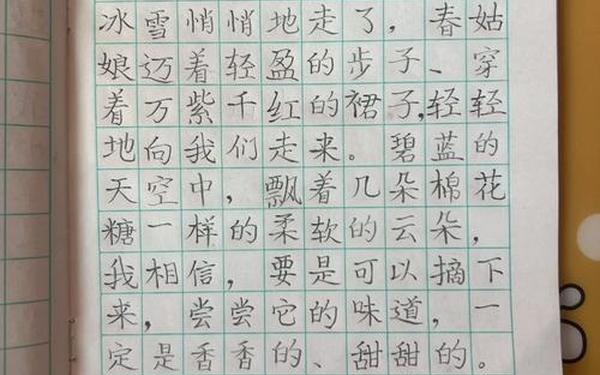 冰雪悄悄地走了，春姑
娘迈着轻盈的步子、穿
着万紫千红的裙子,轻轻
地向我们走来。碧蓝的
天空中，飘着几朵棉花
糖一样的柔软的云朵，
我相信，要是可以摘下
来，尝尝它的味道，一
定是香香的、甜甜的。